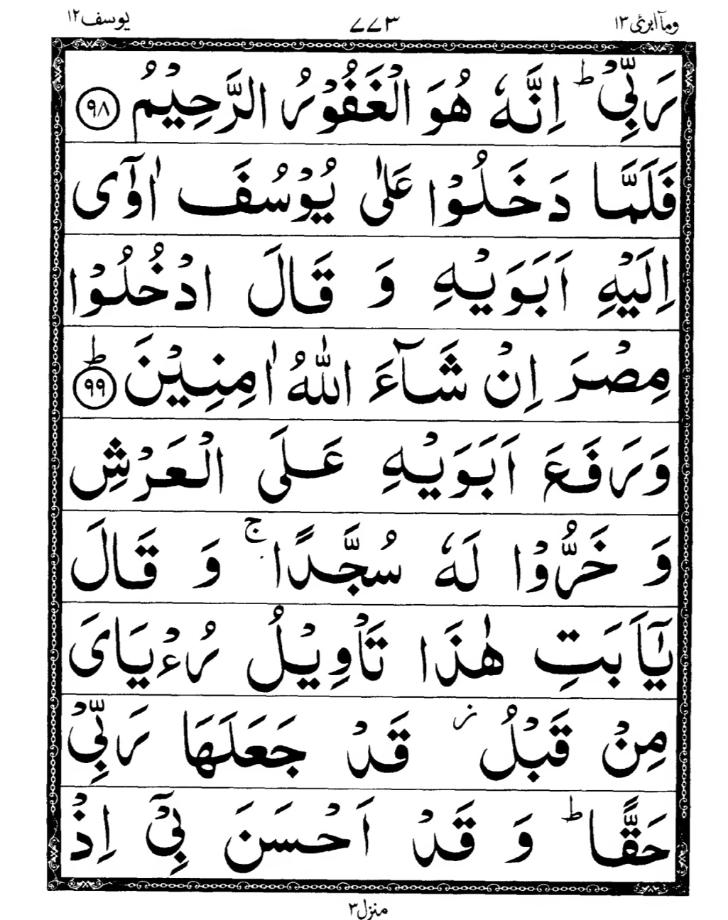 وما ابرئ ١٣ ٧٧٣ يوسف ١٢
رَبِّيْ ؕ اِنَّهٗ هُوَ الْغَفُوْرُ الرَّحِيْمُ ﴿٩٨﴾
فَلَمَّا دَخَلُوْا عَلٰى يُوْسُفَ اٰوٰۤى
اِلَيْهِ اَبَوَيْهِ وَ قَالَ ادْخُلُوْا
مِصْرَ اِنْ شَآءَ اللّٰهُ اٰمِنِيْنَ ﴿٩٩﴾ؕ
وَرَفَعَ اَبَوَيْهِ عَلَى الْعَرْشِ
وَ خَرُّوْا لَهٗ سُجَّدًا ۚ وَ قَالَ
يٰۤاَبَتِ هٰذَا تَاْوِيْلُ رُءْيَاىَ
مِنْ قَبْلُ ؗ قَدْ جَعَلَهَا رَبِّيْ
حَقًّا ؕ وَ قَدْ اَحْسَنَ بِيْۤ اِذْ
منزل ٣